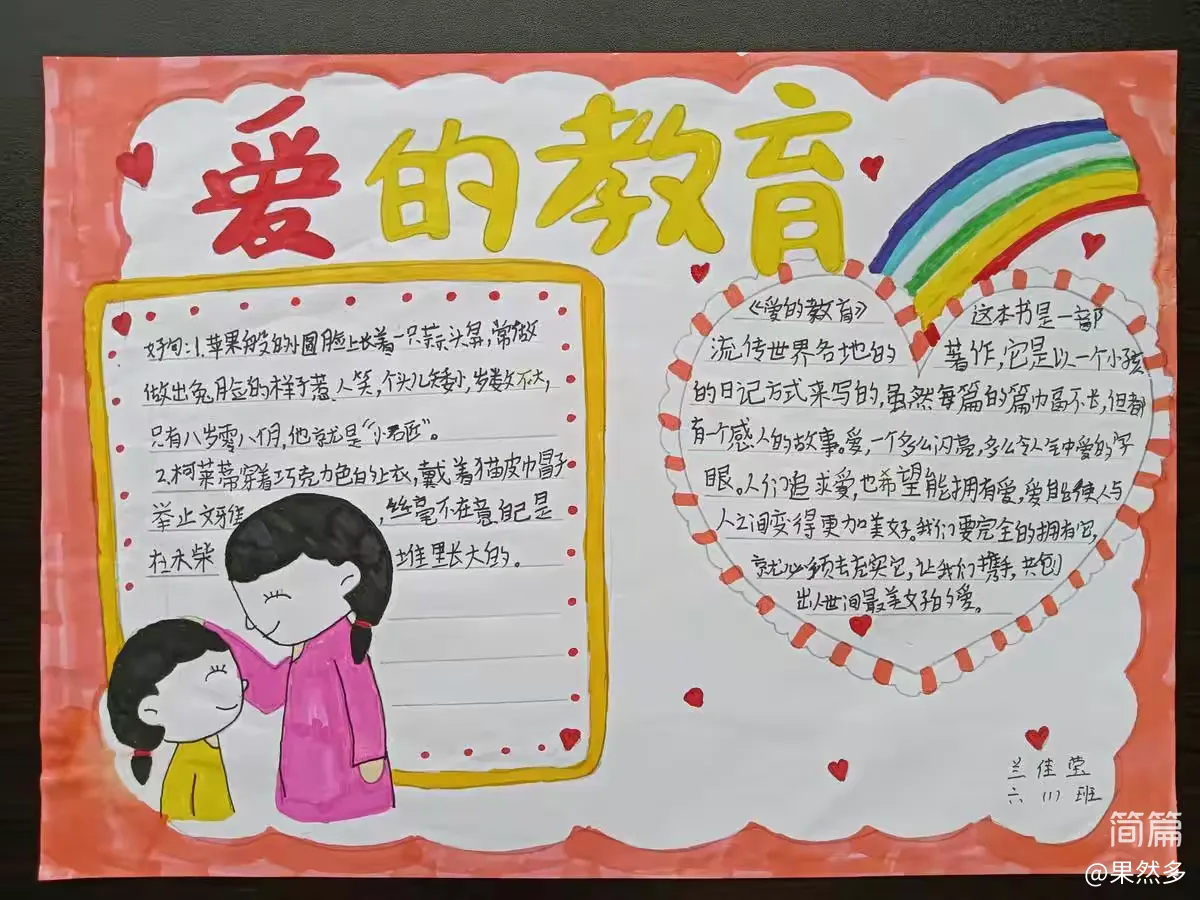 爱的教育
好句:1.苹果般的小圆脸上长着一只蒜头鼻,常做
做出兔脸的样子惹人笑,个头儿矮小,岁数不大,
只有八岁零八个月,他就是“小石匠”。
2.柯莱蒂穿着巧克力色的上衣,戴着猫皮巾冒子
举止文雅,丝毫不在意自己是
在木柴堆里长大的。
《爱的教育》这本书是一部
流传世界各地的著作,它是以一个小孩
的日记方式来写的,虽然每篇的篇幅不长,但都
有一个感人的故事。爱,一个多么闪亮,多么令人气中爱的字
眼。人们追求爱,也希望能拥有爱,爱能使人与
人之间变得更加美好。我们要完全的拥有它,
就必须去充实它,让我们携手,共创
出人世间最美好的爱。
兰佳莹
六(1)班
简篇
@果然多